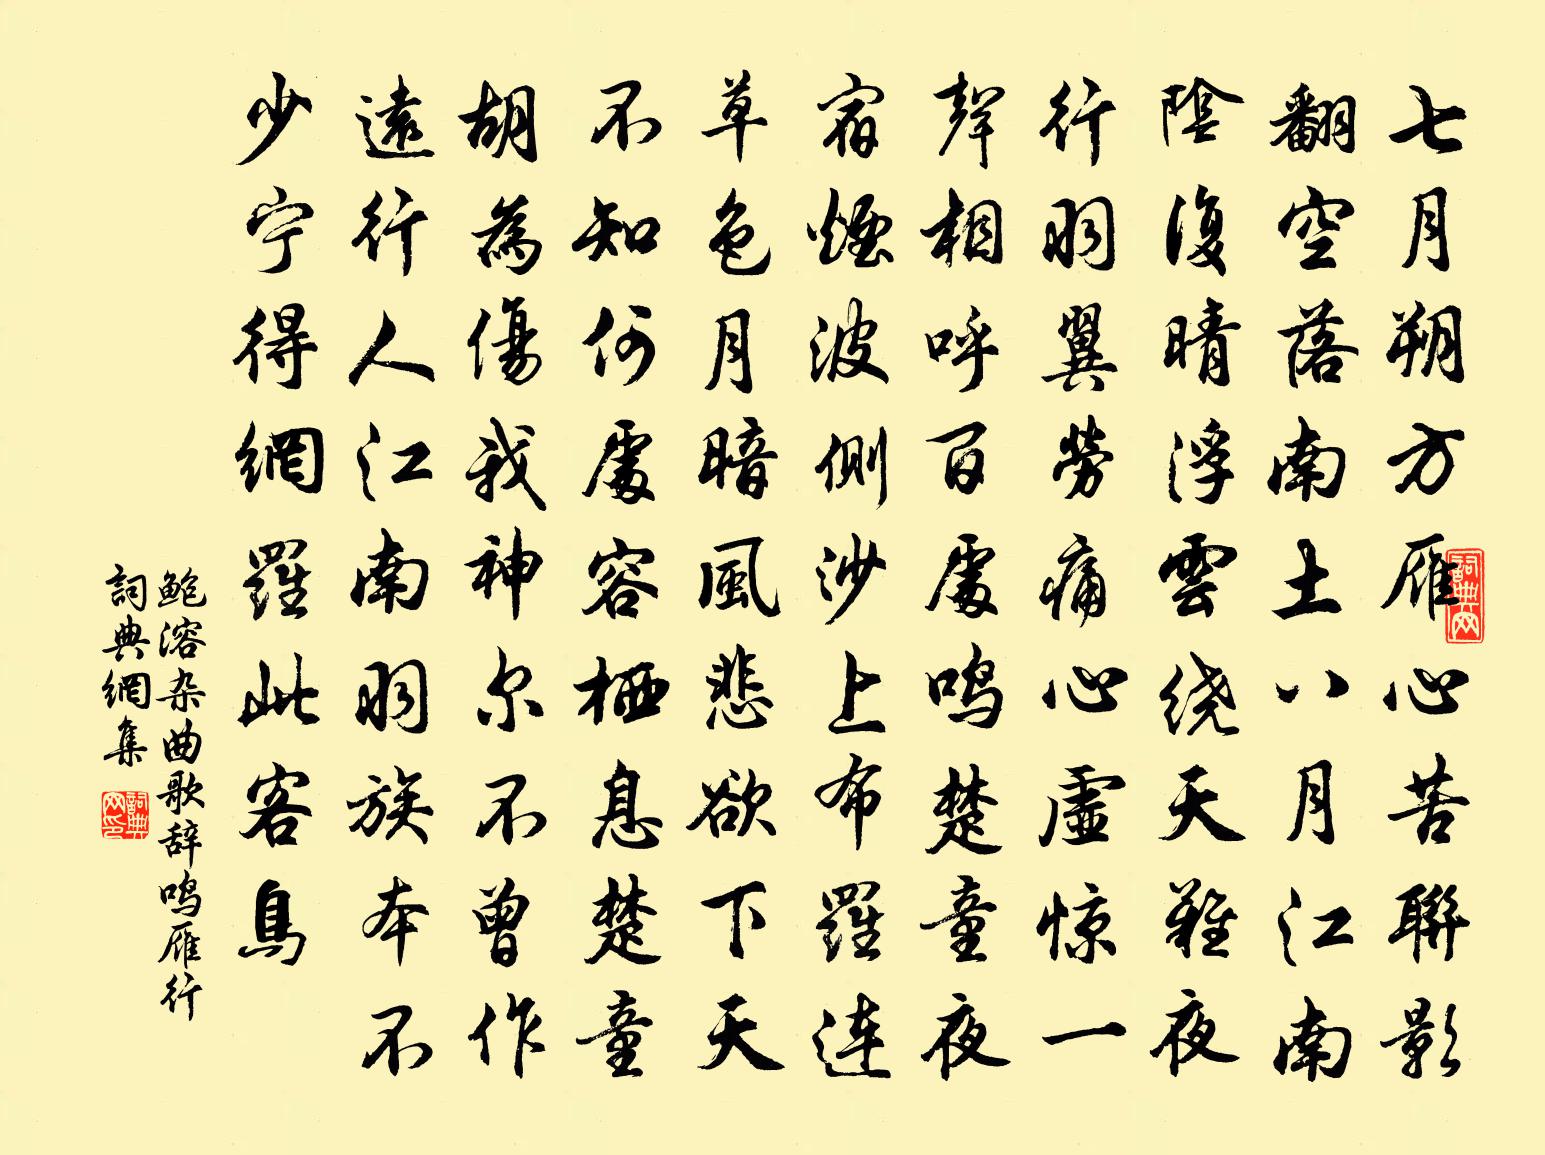 七月朔方雁心苦聯影
翻空落南土八月江南
陰復晴浮雲繞天難夜
行羽翼勞痛心虛惊一
聲相呼百處鳴楚童夜
宿煙波側沙上布羅連
草色月暗風悲欲下天
不知何處容栖息楚童
胡為傷我神尔不曾作
遠行人江南羽族本不
少宁得網羅此客鳥
鲍溶杂曲歌辞鸣雁行
詞典網集
詞典网
詞典网印